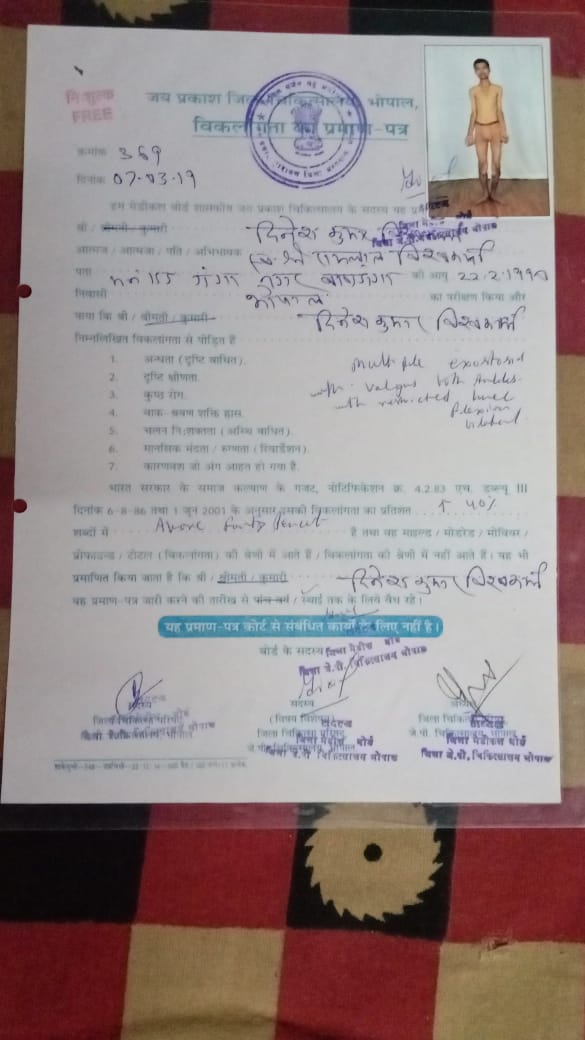 निःशुल्क
FREE
जय प्रकाश जिला चिकित्सालय भोपाल,
विकलांगता का प्रमाण-पत्र
क्रमांक 369
दिनांक 07-03-19
हम मेडीकल बोर्ड शासकीय जय प्रकाश चिकित्सालय के सदस्य यह
श्री / श्रीमती / कुमारी दिनेश कुमार
आत्मज / आत्मजा / पति / अभिभावक श्री रामलाल विश्वकर्मा
पता गंगा नगर बाणगंगा की आयु 22.2.1990
निवासी भोपाल का परीक्षण किया और
पाया कि श्री / श्रीमती / कुमारी दिनेश कुमार विश्वकर्मा
निम्नलिखित विकलांगता से पीड़ित है
1. अन्धता (दृष्टि बाधित).
2. दृष्टि क्षीणता.
3. कुष्ठ रोग.
4. वाक-श्रवण शक्ति हास.
5. चलन निःशक्तता (अस्थि बाधित).
6. मानसिक मंदता / रुग्णता (रिटार्डेशन).
7. कारणवश जो अंग आहत हो गया है.
multiple
with valgus both Ankles
with restricted knee
flexion
bilateral
भारत सरकार के समाज कल्याण के गजट, नोटिफिकेशन क्र. 4.2.83 एच. डब्ल्यू III
दिनांक 6-8-86 तथा 1 जून 2001 के अनुसार इसकी विकलांगता का प्रतिशत 40%
शब्दों में Above है तथा वह माइल्ड / मोडरेड / सीवियर /
प्रोफाउन्ड / टोटल (विकलांगता) की श्रेणी में आते हैं / विकलांगता की श्रेणी में नहीं आते हैं। यह भी
प्रमाणित किया जाता है कि श्री / श्रीमती / कुमारी दिनेश कुमार विश्वकर्मा
यह प्रमाण-पत्र जारी करने की तारीख से पांच वर्ष / स्थाई तक के लिये वैध रहे।
यह प्रमाण-पत्र कोर्ट से संबंधित कार्यों के लिए नहीं है।
बोर्ड के सदस्य
सदस्य
सदस्य
जिला चिकित्सा
(विषय विशेषज्ञ)
जिला चिकित्सा
जिला मेडीकल बोर्ड
जिला जे.पी. चिकित्सालय भोपाल